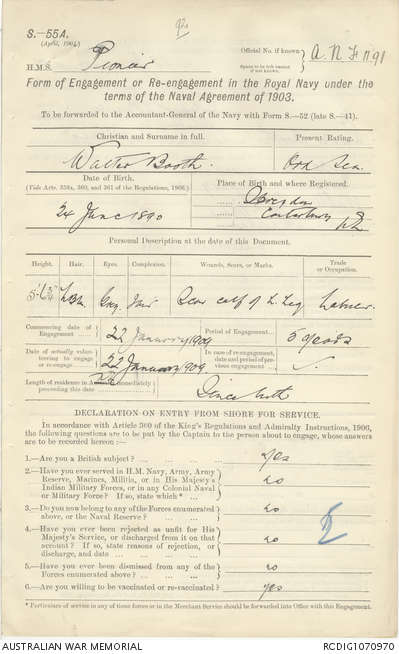 S.—55A.
(April, 1904.)
H.M.S. Pioneer
Official No. if known
Space to be left vacant
if not known.
A.N.F. 1191
Form of Engagement or Re-engagement in the Royal Navy under the
terms of the Naval Agreement of 1903.
To be forwarded to the Accountant-General of the Navy with Form S.—52 (late S.—41).
Christian and Surname in full.
Present Rating.
Walter Booth.
Ord Sea.
Date of Birth.
(Vide Arts. 358a, 360, and 361 of the Regulations, 1906.)
Place of Birth and where Registered.
24 June 1890
Canterbury
NZ
Personal Description at the date of this Document.
Height. Hair. Eyes. Complexion. Wounds, Scars, or Marks. Trade
or Occupation.
L. Bn. Grey Fair Scar calf of L. Leg Labourer.
Commencing date of
Engagement
22 January 1909
Period of Engagement
5 years
Date of actually volun-
teering to engage
or re-engage
22 January 1909
In case of re-engagement,
date and period of pre-
vious engagement
Length of residence in immediately
preceding this date
Since birth
DECLARATION ON ENTRY FROM SHORE FOR SERVICE.
In accordance with Article 360 of the King's Regulations and Admiralty Instructions, 1906,
the following questions are to be put by the Captain to the person about to engage, whose answers
are to be recorded hereon :—
1.—Are you a British subject ? yes
2.—Have you ever served in H.M. Navy, Army, Army
Reserve, Marines, Militia, or in His Majesty's
Indian Military Forces, or in any Colonial Naval
or Military Force? If so, state which * no
3.—Do you now belong to any of the Forces enumerated
above, or the Naval Reserve ? no
4.—Have you ever been rejected as unfit for His
Majesty's Service, or discharged from it on that
account ? If so, state reasons of rejection, or
discharge, and date no
5.—Have you ever been dismissed from any of the
Forces enumerated above ? no
6.—Are you willing to be vaccinated or re-vaccinated ? yes
* Particulars of service in any of these forces or in the Merchant Service should be forwarded into Office with this Engagement.
AUSTRALIAN WAR MEMORIAL
RCDIG1070970